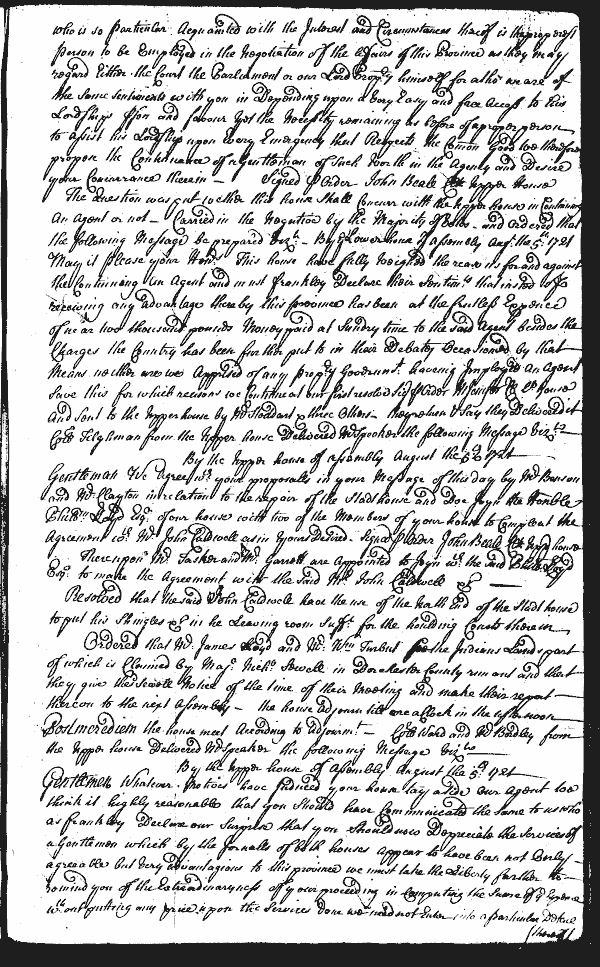 who is so particular Acquainted with the Interest and Circumstances thereof is the properest
Person to be Employed in the Negotiation of the Affairs of this Province as they may
regard Either the Court the Parliament or our Lord Prop:ry himself for altho' we are of
the same sentiments with you in Depending upon a very Easy and free Access to his
Lordships and favour yet the Necessity remaining as before of a proper person
to assist his Lordship upon Every Emergency that Respects the Comon Good we therefore
propose the Continuance of a Gentleman of such worth in the Agency and Desire
your Concurrance therein — Signed p Order John Beale Cl: upper House
The Question was put wether this house shall Concurr with the upper house in Continuing
An Agent or not — Carried in the Negative by the Majority of Votes — and ordered that
the following Message be prepared Vizt — By the Lower house of Assembly Augt. the 5th 1721
May it please your Honrs This house have fully weighed the reasons for and against
the Continuing an Agent and must frankley Declare their Sentimts that instead of
receiving any advantage thereby this province has been at the fruitless Expence
of near two thousand pounds Money paid at Sundry time to the said Agent besides the
Charges the Country has been further put to in their Debates Occasioned by that
Means neither are we Apprised of any propry Governmt. haveing Imployed an Agent
save this for which reasons we Continue at our first resolve Sigd p Order M: Jenifer Cl Lo House
And sent to the upper house by Mr Stoddart & three Others — they return & say they Delivered it
Colo Tilghman from the upper house Delivered Mr Speaker the following Message Vizt
By the upper house of Assembly August the 5th 1721
Gentlemen We Agree wth your proposalls in your Message of this day by Mr Benson
and Mr Clayton in relation to the repair of the Stadt house and doe Joyn the Honble
Phile: Lloyd Esq. of our house with two of the Members of your house to Compleat the
Agreement wt Mr John Caldwell as in yours Desired. Signed p Order John Beale Cl upp house
Thereupon Mr Tasker and Mr Garrett are Appointed to Joyn wt the said Phile: Lloyd
Esq. to make the Agreement with the said Mr John Caldwell &
Resolved that the said John Caldwell have the use of the North End of the Stadt house
to put his Shingles & in he Leaving room suft for the houlding Courts therein
Ordered that Mr James Lloyd and Mr Wm Turbut see the Indians Lands part
of which is Claimed by Majr Nichs Sewell in Dorchester County run out and that
they give the Sewell Notice of the time of their Meeting and make their report
thereon to the next Assembly — the house Adjourn till one a Clock in the afternoon
Postmeridiem the house meet According to Adjournt — Colo Ward and Mr Bradley from
the upper house Delivered Mr Speaker the following Message Vizt
By the upper house of Assembly August the 5th 1721
Gentlemen Whatever Motives have Induced your house lay aside our Agent we
think it highly reasonable that you should have Communicated the same to us who
as frankley Declare our Surprise that you should now Depreciate the Services of
a Gentleman which by the Jornalls of both houses Appear to have been not Only
agreeable but very advantagious to this province we must take the Liberty further to
remind you of the Extraordinaryness of your proceeding in Computing the Summ of ye Expence
wth out putting any price upon the Services done we need not Enter into a particular Detail
thereof